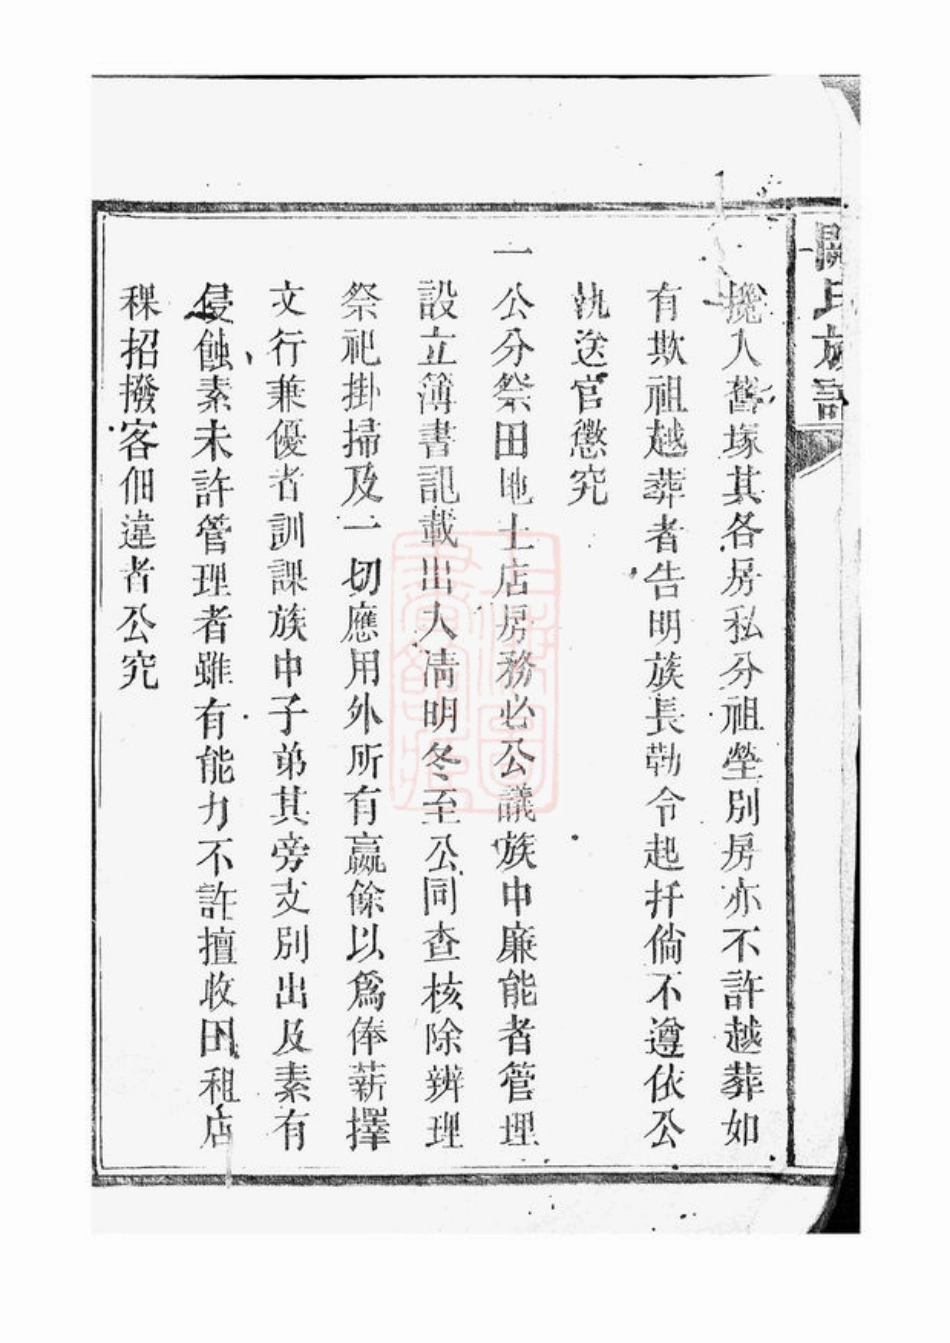 氏族譜
攙人舊塚其各房私分祖塋別房亦不許越葬如
有欺祖越葬者告明族長勒令起扦倘不遵依公
執送官懲究
一公分祭田地土店房務必公議族中廉能者管理
設立簿書記載出入清明冬至公同查核除辨理
祭祀掛掃及一切應用外所有贏餘以爲俸薪擇
文行兼優者訓課族中子弟其旁支別出及素有
侵蝕素未許管理者雖有能力不許擅收田租店
稞招撥客佃違者公究